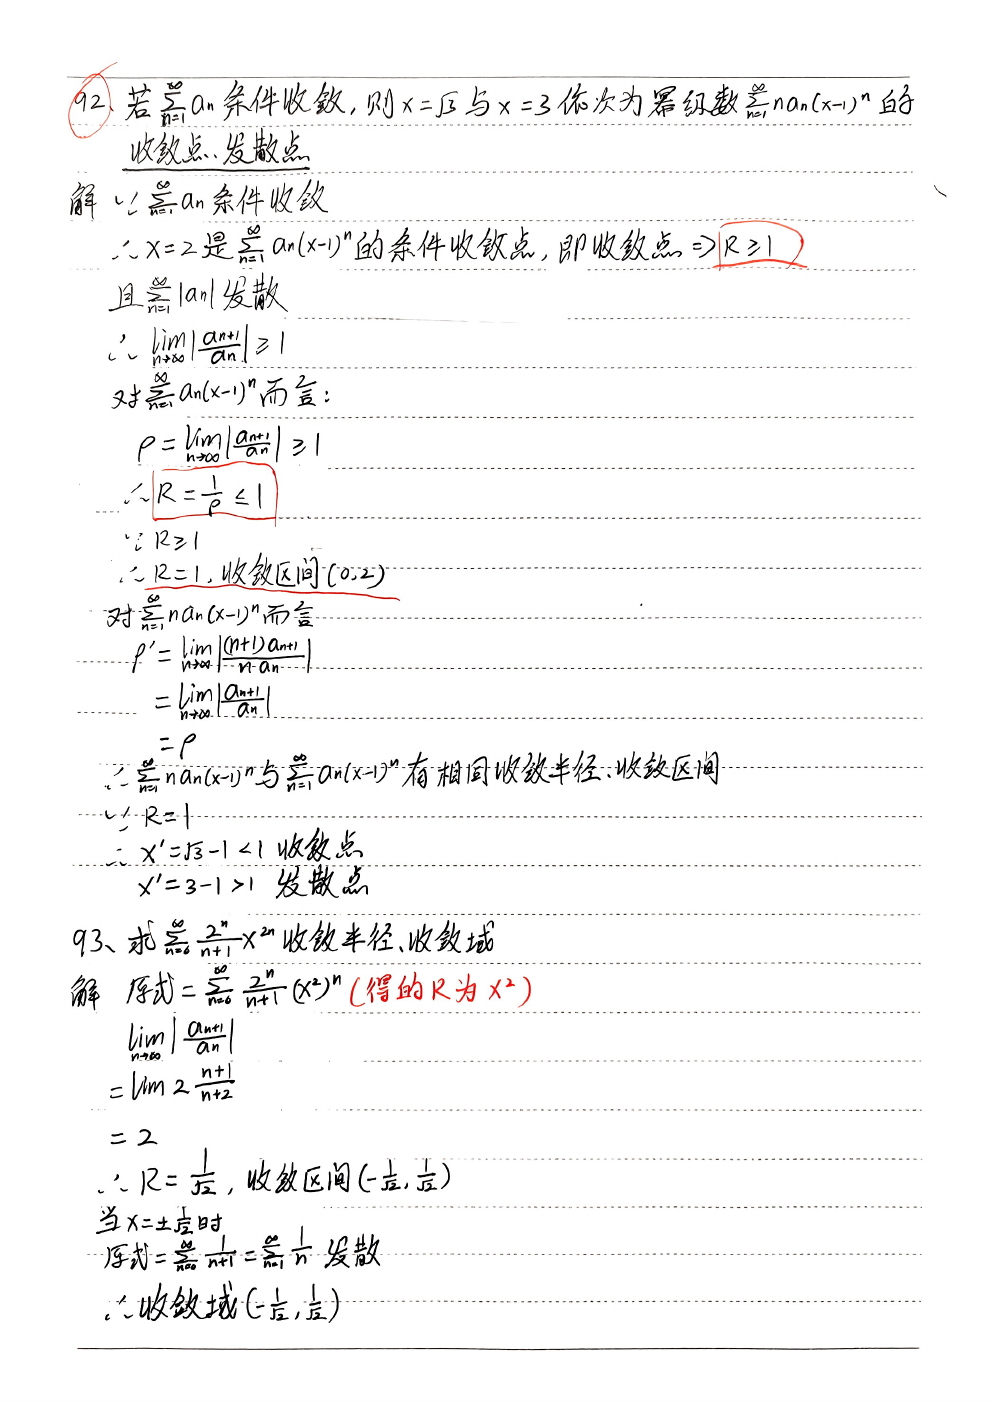 92、若∑_{n=1}^{∞} an 条件收敛,则x=√3与x=3依次为幂级数∑_{n=1}^{∞} nan(x-1)^n 的
收敛点、发散点
解 ∵ ∑_{n=1}^{∞} an 条件收敛
∴ x=2是∑_{n=1}^{∞} an(x-1)^n 的条件收敛点,即收敛点 ⇒ R≥1
且∑_{n=1}^{∞} |an| 发散
∴ lim_{n→∞} |a_{n+1}/a_n| ≥ 1
对∑_{n=1}^{∞} an(x-1)^n 而言:
ρ = lim_{n→∞} |a_{n+1}/a_n| ≥ 1
∴ R = 1/ρ ≤ 1
∵ R≥1
∴ R=1,收敛区间(0,2)
对∑_{n=1}^{∞} nan(x-1)^n 而言
ρ' = lim_{n→∞} |(n+1)a_{n+1}/(n·a_n)|
= lim_{n→∞} |a_{n+1}/a_n|
= ρ
∴ ∑_{n=1}^{∞} nan(x-1)^n 与 ∑_{n=1}^{∞} an(x-1)^n 有相同收敛半径、收敛区间
∵ R=1
∴ x'=√3-1<1 收敛点
x'=3-1>1 发散点
93、求 ∑_{n=0}^{∞} 2^n/(n+1) x^{2n} 收敛半径、收敛域
解 原式 = ∑_{n=0}^{∞} 2^n/(n+1) (x²)^n (得的R为x²)
lim_{n→∞} |a_{n+1}/a_n|
= lim 2 (n+1)/(n+2)
= 2
∴ R = 1/√2,收敛区间(-1/√2, 1/√2)
当x=±1/√2时
原式 = ∑_{n=0}^{∞} 1/(n+1) = ∑_{n=1}^{∞} 1/n 发散
∴ 收敛域(-1/√2, 1/√2)